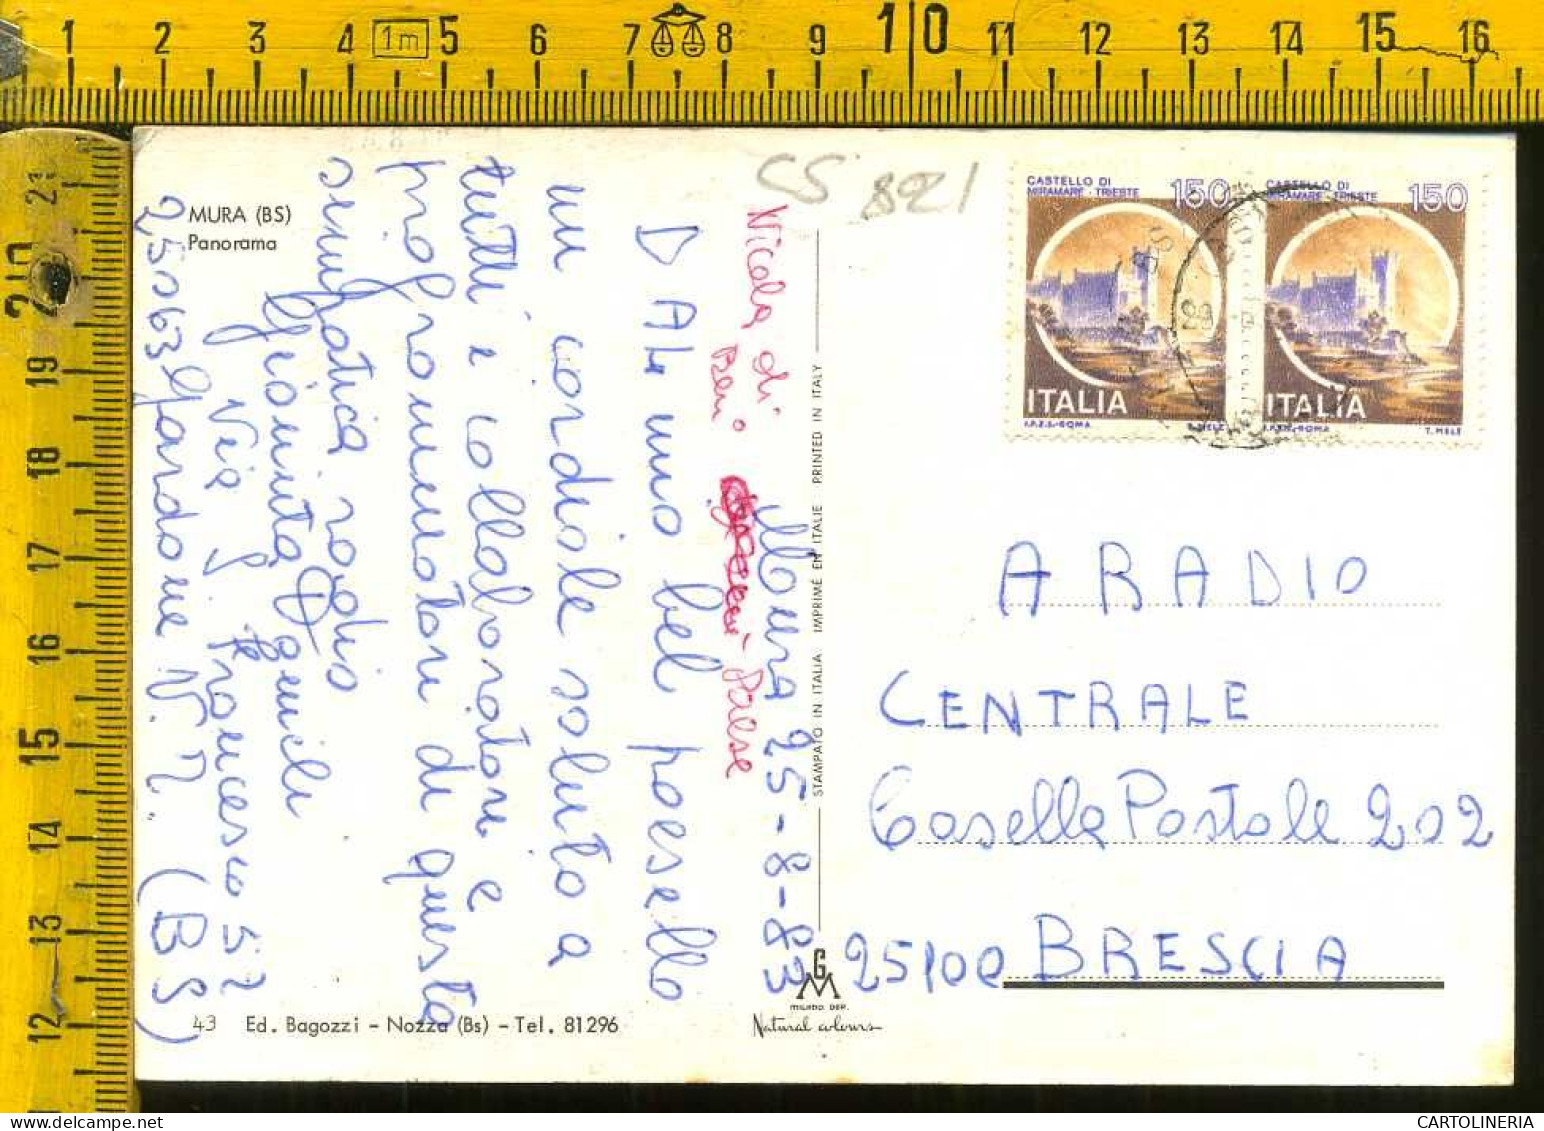 1 2 3 4 1m 5 6 7 8 9 10 11 12 13 14 15 16
21
20
19
18
17
16
15
14
13
12
MURA (BS)
Panorama
CS 821
CASTELLO DI
MIRAMARE - TRIESTE
150
ITALIA
I.P.Z.S.-ROMA
T. MELE
CASTELLO DI
MIRAMARE - TRIESTE
150
ITALIA
I.P.Z.S.-ROMA
T. MELE
Mura 25-8-83
Nicola di
Bari
Dal mio bel paesello
un cordiale saluto a
tutti i collaboratori e
programmatori di questa
simpatica radio
Gemili
Via S Francesco 52
25063 Gardone V.T. (BS)
STAMPATO IN ITALIA IMPRIMÉ EN ITALIE PRINTED IN ITALY
A RADIO
CENTRALE
Casella Postale 202
25100 BRESCIA
GM
MILANO DEP.
Natural colours
43 Ed. Bagozzi - Nozza (Bs) - Tel. 81296
delcampe.net
CARTOLINERIA